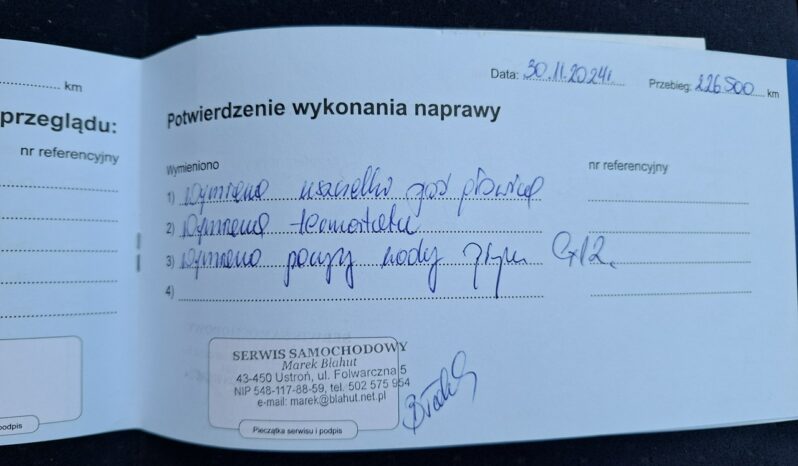 km
Data: 30.11.2024r. Przebieg: 226.500 km
przeglądu:
Potwierdzenie wykonania naprawy
nr referencyjny
Wymieniono
nr referencyjny
1) wymiana uszczelka pod
2) wymiana termostatu
3) wymiana pompy wody płyn G12.
4)
SERWIS SAMOCHODOWY
Marek Błahut
43-450 Ustroń, ul. Folwarczna 5
NIP 548-117-88-59, tel. 502 575 954
e-mail: marek@blahut.net.pl
podpis
Pieczątka serwisu i podpis